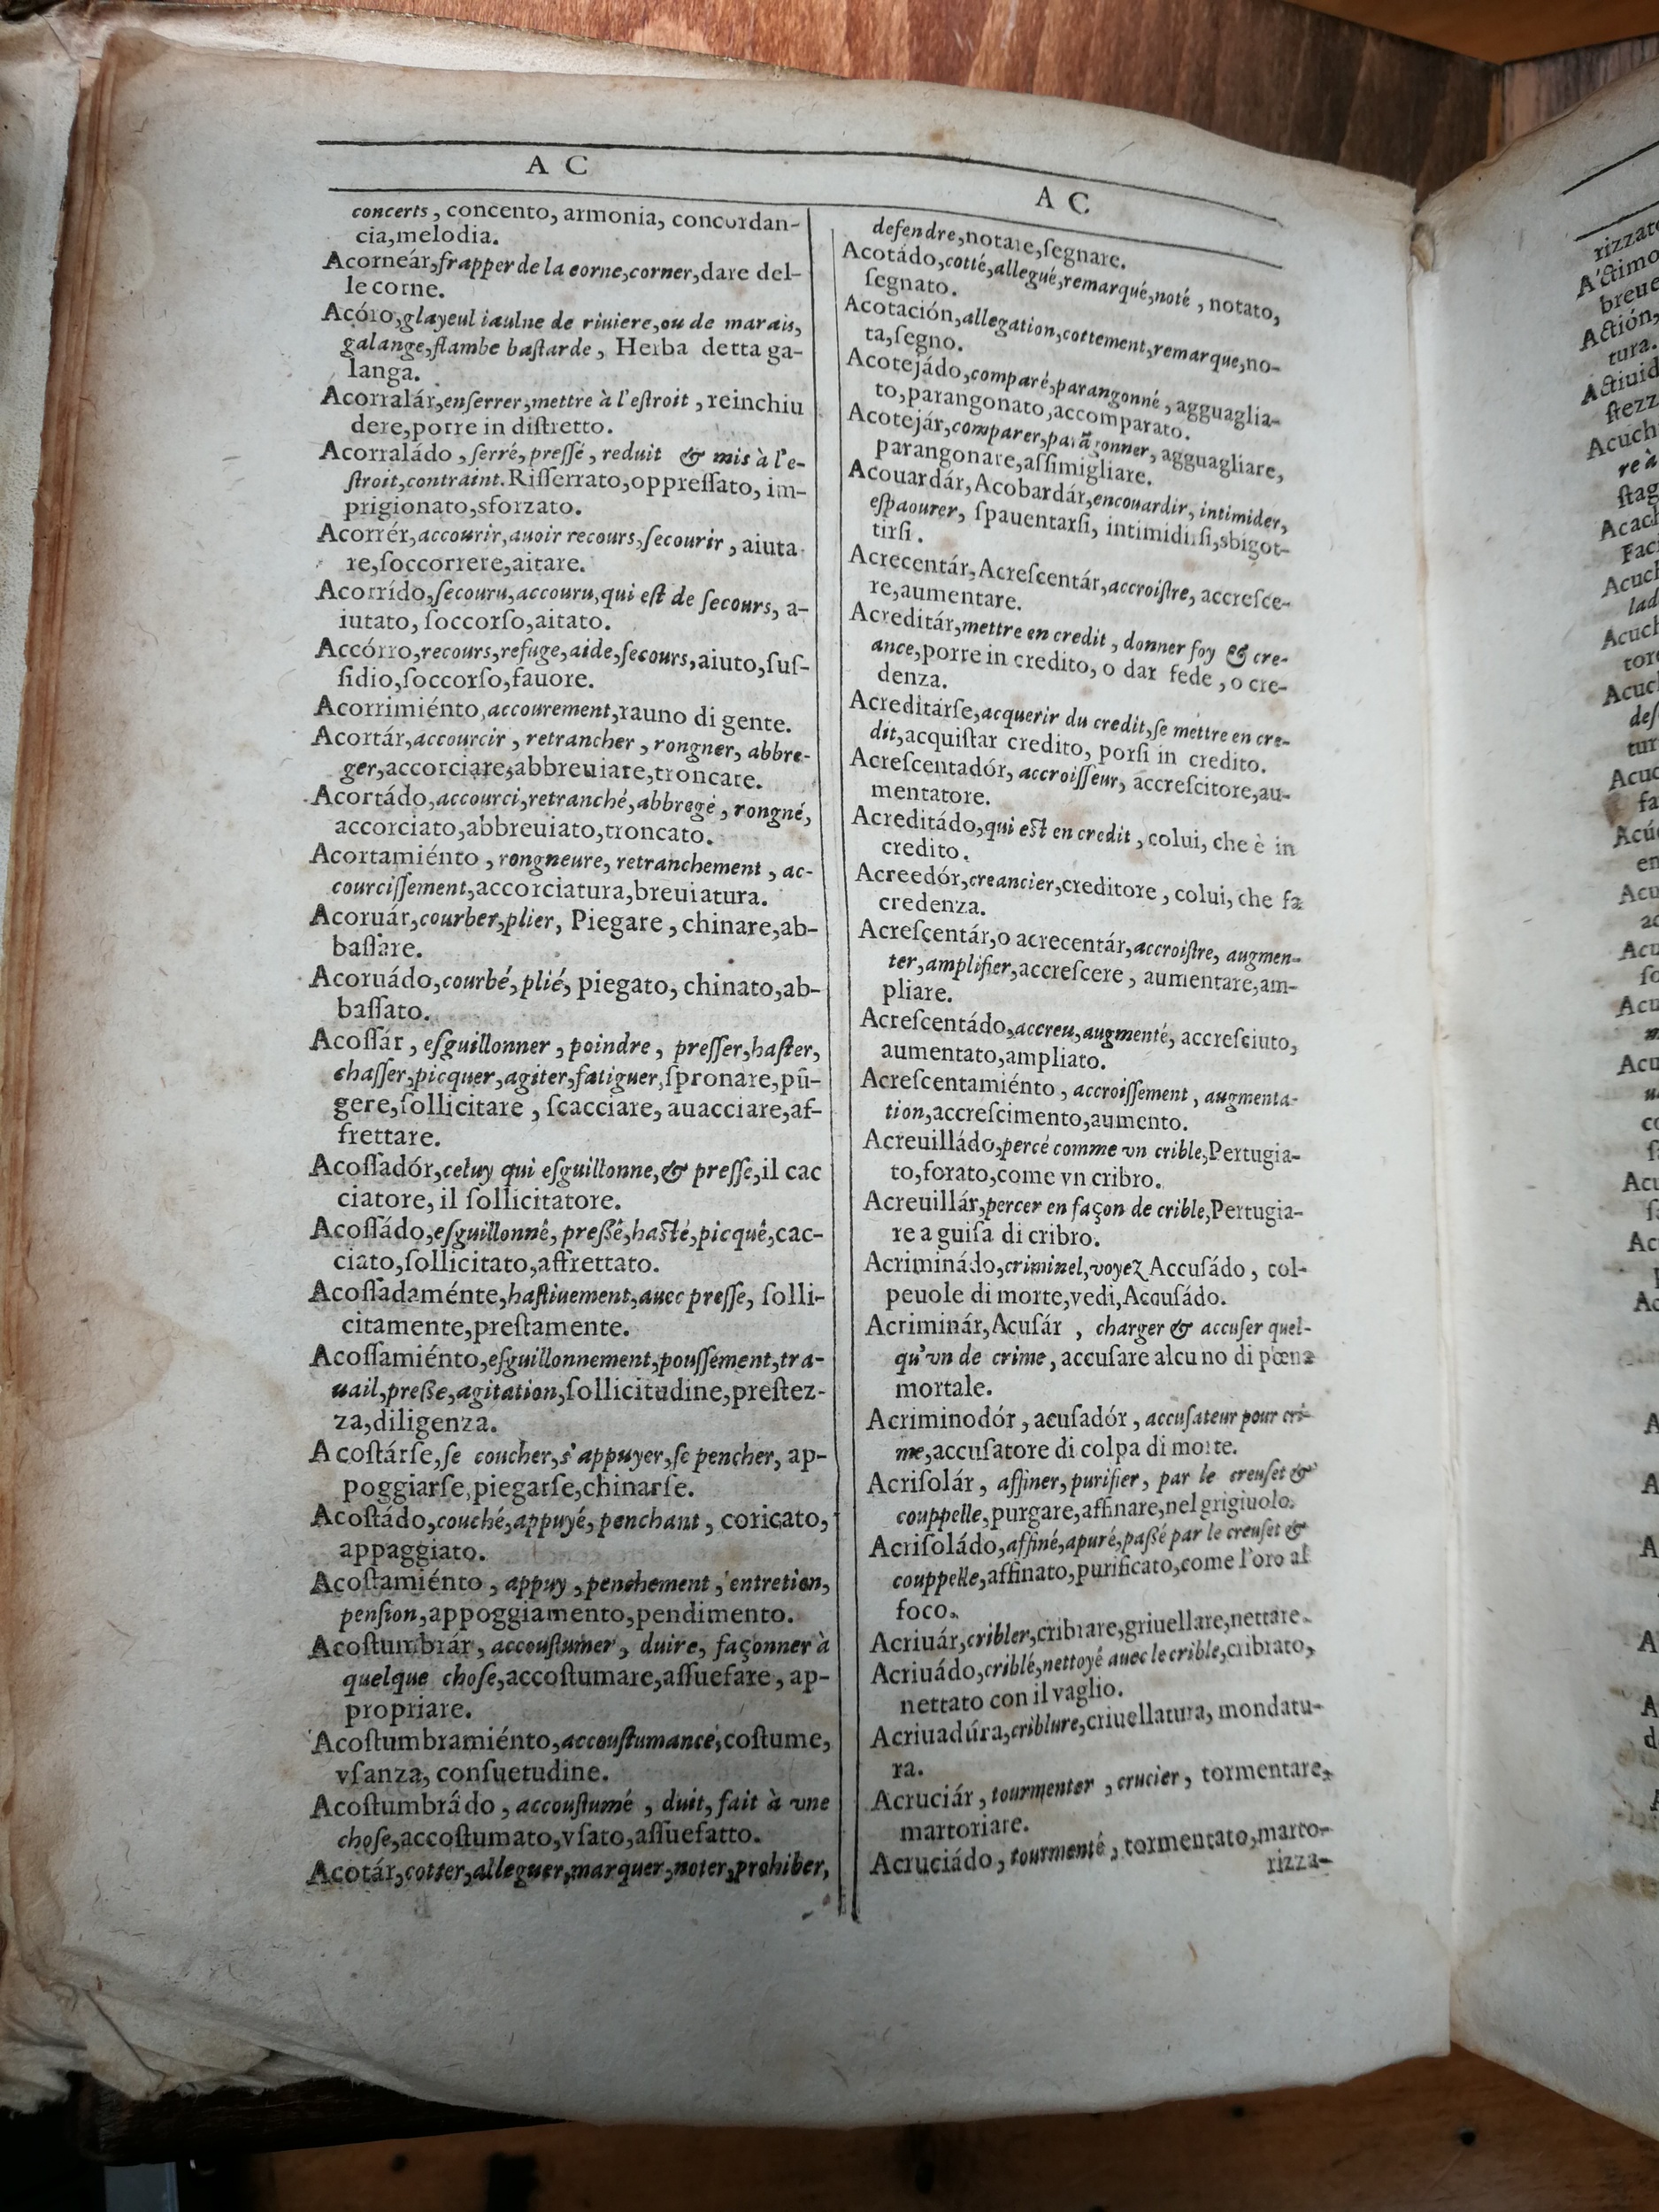 A C
concerts, concento, armonia, concordan-
cia,melodia.
Acorneár,frapper de la corne,corner,dare del-
le corne.
Acóro,glayeul iaulne de riuiere,ou de marais,
galange,flambe baſtarde, Herba detta ga-
langa.
Acorralár,enſerrer,mettre à l'eſtroit, reinchiu
dere,porre in diſtretto.
Acorraládo, ſerré, preſſé, reduit & mis à l'e-
ſtroit,contraint.Riſſerrato,oppreſſato, im-
prigionato,sforzato.
Acorrér,accourir,auoir recours,ſecourir, aiuta
re,ſoccorrere,aitare.
Acorrído,ſecouru,accouru,qui eſt de ſecours, a-
iutato, ſoccorſo,aitato.
Accórro,recours,refuge,aide,ſecours,aiuto,ſuſ-
ſidio,ſoccorſo,fauore.
Acorrimiénto,accourement,rauno di gente.
Acortár,accourcir, retrancher, rongner, abbre-
ger,accorciare,abbreuiare,troncare.
Acortádo,accourci,retranché,abbregé, rongné,
accorciato,abbreuiato,troncato.
Acortamiénto, rongneure, retranchement, ac-
courciſſement,accorciatura,breuiatura.
Acoruár,courber,plier, Piegare, chinare,ab-
baſſare.
Acoruádo,courbé,plié, piegato, chinato,ab-
baſſato.
Acoſſár, eſguillonner, poindre, preſſer,haſter,
chaſſer,picquer,agiter,fatiguer,ſpronare,pū-
gere,ſollicitare, ſcacciare, auacciare,af-
frettare.
Acoſſadór,celuy qui eſguillonne,& preſſe,il cac
ciatore, il ſollicitatore.
Acoſſádo,eſguillonné, preßé,haſté,picqué,cac-
ciato,ſollicitato,affrettato.
Acoſſadaménte,haſtiuement,auec preſſe, ſolli-
citamente,preſtamente.
Acoſſamiénto,eſguillonnement,pouſſement,tra-
uail,preße,agitation,ſollicitudine,preſtez-
za,diligenza.
Acoſtárſe,ſe coucher,s'appuyer,ſe pencher, ap-
poggiarſe,piegarſe,chinarſe.
Acoſtádo,couché,appuyé, penchant, coricato,
appaggiato.
Acoſtamiénto, appuy, penchement, entretien,
penſion,appoggiamento,pendimento.
Acoſtumbrár, accouſtumer, duire, façonner à
quelque choſe,accoſtumare,aſſuefare, ap-
propriare.
Acoſtumbramiénto,accouſtumance,coſtume,
vſanza, conſuetudine.
Acoſtumbrádo, accouſtumé, duit, fait à vne
choſe,accoſtumato,vſato,aſſuefatto.
Acotár,cotter,alleguer,marquer,noter,prohiber,
A C
defendre,notare,ſegnare.
Acotádo,cotté,allegué,remarqué,noté, notato,
ſegnato.
Acotación,allegation,cottement,remarque,no-
ta,ſegno.
Acotejádo,comparé,parangonné, agguaglia-
to,parangonato,accomparato.
Acotejár,comparer,parāgonner, agguagliare,
parangonare,aſſimigliare.
Acouardár, Acobardár,encouardir, intimider,
eſpaourer, ſpauentarſi, intimidirſi,sbigot-
tirſi.
Acrecentár, Acreſcentár,accroiſtre, accreſce-
re,aumentare.
Acreditár,mettre en credit, donner foy & cre-
ance,porre in credito, o dar fede, o cre-
denza.
Acreditarſe,acquerir du credit,ſe mettre en cre-
dit,acquiſtar credito, porſi in credito.
Acreſcentadór, accroiſſeur, accreſcitore,au-
mentatore.
Acreditádo,qui eſt en credit, colui, che è in
credito.
Acreedór,creancier,creditore, colui, che fa
credenza.
Acreſcentár,o acrecentár,accroiſtre, augmen-
ter,amplifier,accreſcere, aumentare,am-
pliare.
Acreſcentádo,accreu,augmenté, accreſciuto,
aumentato,ampliato.
Acreſcentamiénto, accroiſſement, augmenta-
tion,accreſcimento,aumento.
Acreuilládo,percé comme vn crible,Pertugia-
to,forato,come vn cribro.
Acreuillár,percer en façon de crible,Pertugia-
re a guiſa di cribro.
Acriminádo,criminel,voyez Accuſádo, col-
peuole di morte,vedi,Accuſádo.
Acriminár,Acuſár, charger & accuſer quel-
qu'vn de crime, accuſare alcuno di pœna
mortale.
Acriminodór, acuſadór, accuſateur pour cri-
me,accuſatore di colpa di morte.
Acriſolár, affiner,purifier, par le creuſet &
couppelle,purgare,affinare,nel grigiuolo.
Acriſoládo,affiné,apuré,paßé par le creuſet &
couppelle,affinato,purificato,come l'oro al
foco.
Acriuár,cribler,cribrare,griuellare,nettare.
Acriuádo,criblé,nettoyé auec le crible,cribrato,
nettato con il vaglio.
Acriuadúra,criblure,criuellatura, mondatu-
ra.
Acruciár, tourmenter, crucier, tormentare,
martoriare.
Acruciádo, tourmenté, tormentato,marto-
rizza-
rizzato
A'ctimo
breue
Actión,
tura.
Actiuid
ſtezz
Acuch
re à
ſtag
Acach
Faci
Acuch
lad
Acuch
tore